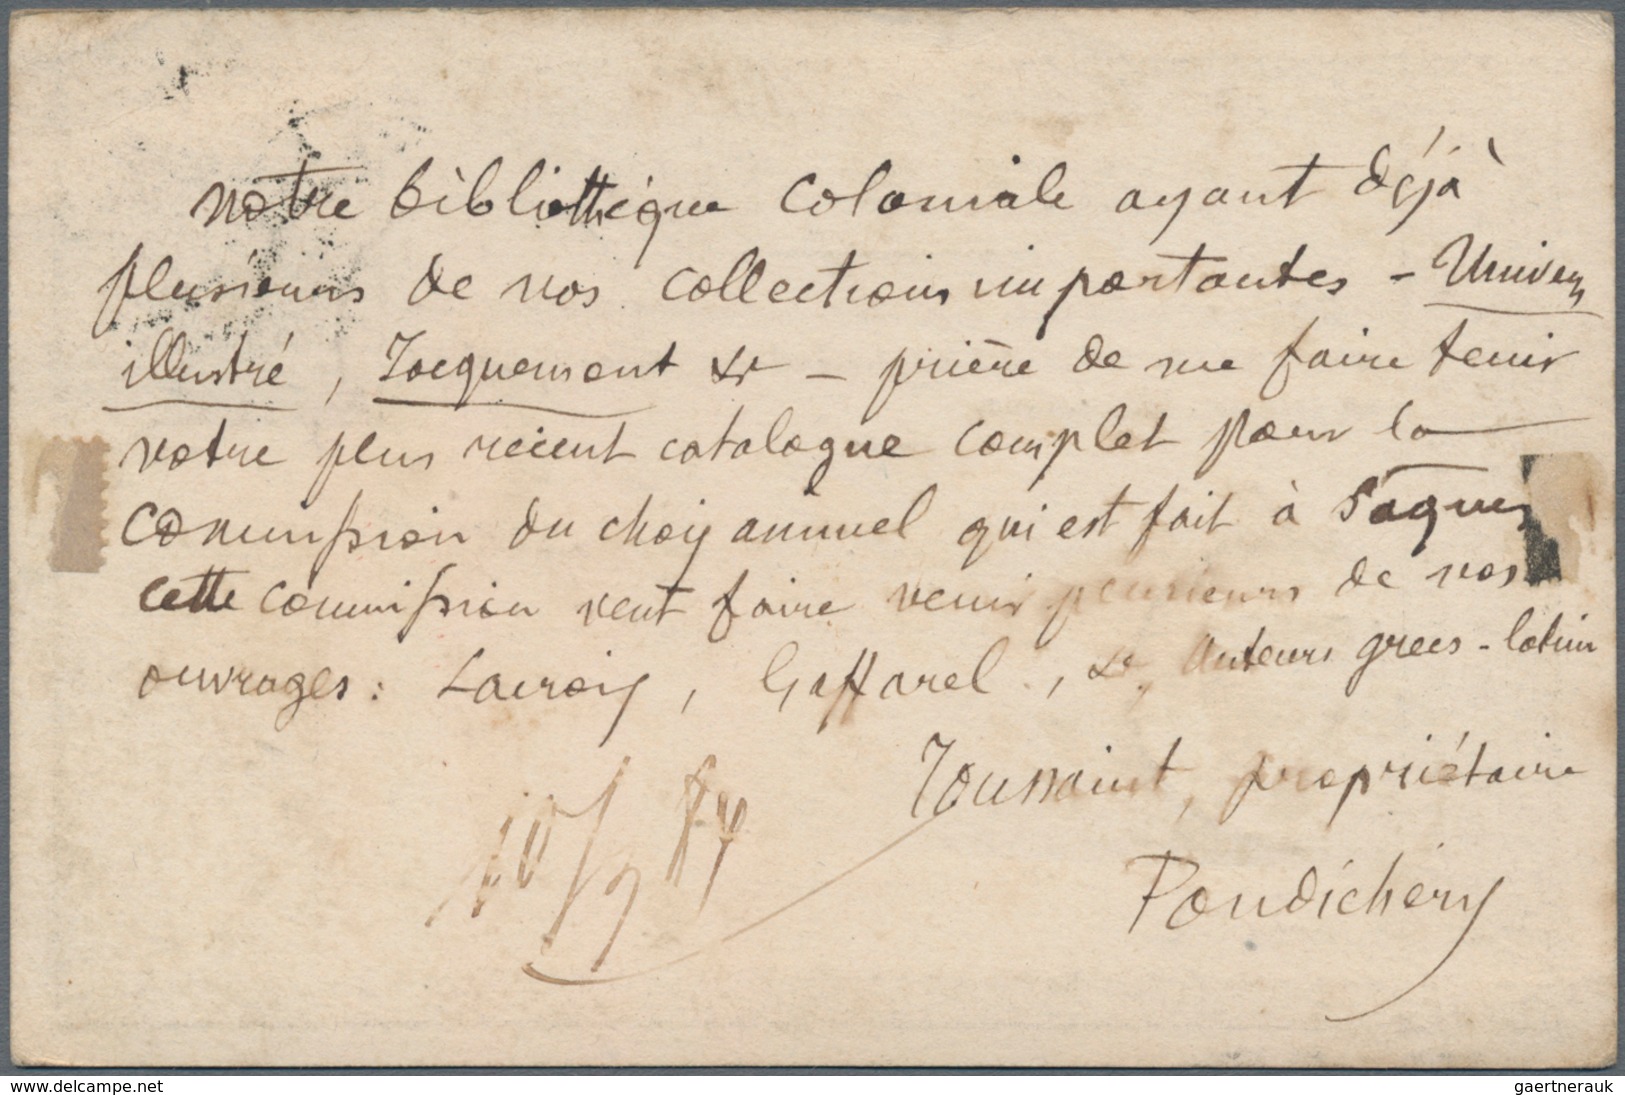 notre bibliothèque coloniale ayant déjà
plusieurs de vos collections importantes - Univers
illustré, Jacquemont &r - prière de me faire tenir
votre plus récent catalogue complet pour la
commission du choix annuel qui est fait à Pâques
cette commission veut faire venir plusieurs de vos
ouvrages : Lacroix, Gaffarel, &r, auteurs grecs-latins
Toussaint, propriétaire
10/9 84
Pondichéry
www.delcampe.net
gaertnerauk